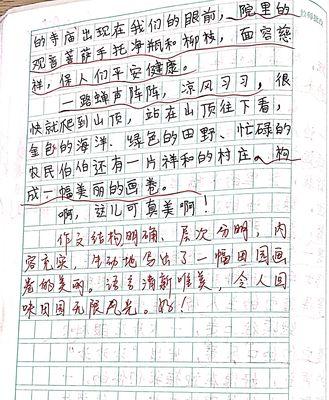 的寺庙出现在我们的眼前，院里的
观音菩萨手托海瓶和柳枝，面容慈
祥，保人们平安健康。
一路蝉声阵阵，凉风习习，很
快就爬到山顶，站在山顶往下看，
金色的海洋、绿色的田野、忙碌的
农民伯伯还有一片祥和的村庄，构
成一幅美丽的画卷。
啊，这儿可真美啊！
作文结构明确、层次分明，内
容充实，生动地写出了一幅田园画
卷的美丽。语言清新唯美，令人回
味田园无限风光。好！